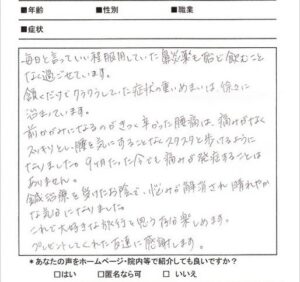 ■年齢 ■性別 ■職業
■症状
毎日と言っていい程服用していた鼻炎薬も殆ど飲むこと
なく過ごせています。
傾くだけでクラクラしていた症状の重いめまいは、徐々に
治まっています。
前かがみになるのがきつく辛かった腰痛は、痛みがなく
スッキリとし、腰を気にすることなくスタスタと歩けるように
なりました。9ヶ月たった今でも痛みが発症することは
ありません。
鍼治療を受けたお陰で、悩みが解消され晴れやか
な気分になりました。
これで大好きな旅行を思う存分楽しめます。
プレゼントしてくれた友達に感謝します。
*あなたの声をホームページ・院内等で紹介しても良いですか？
□はい □匿名なら可 □いいえ